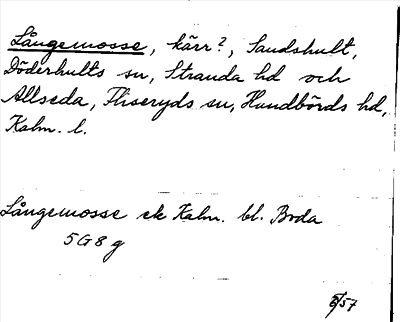 Långemosse, kärr?, Sandshult,
Döderhults sn, Stranda hd och
Allseda, Fliseryds sn, Handbörds hd,
Kalm. l.
Långemosse ek Kalm. bl. Boda
5G8g
6/57